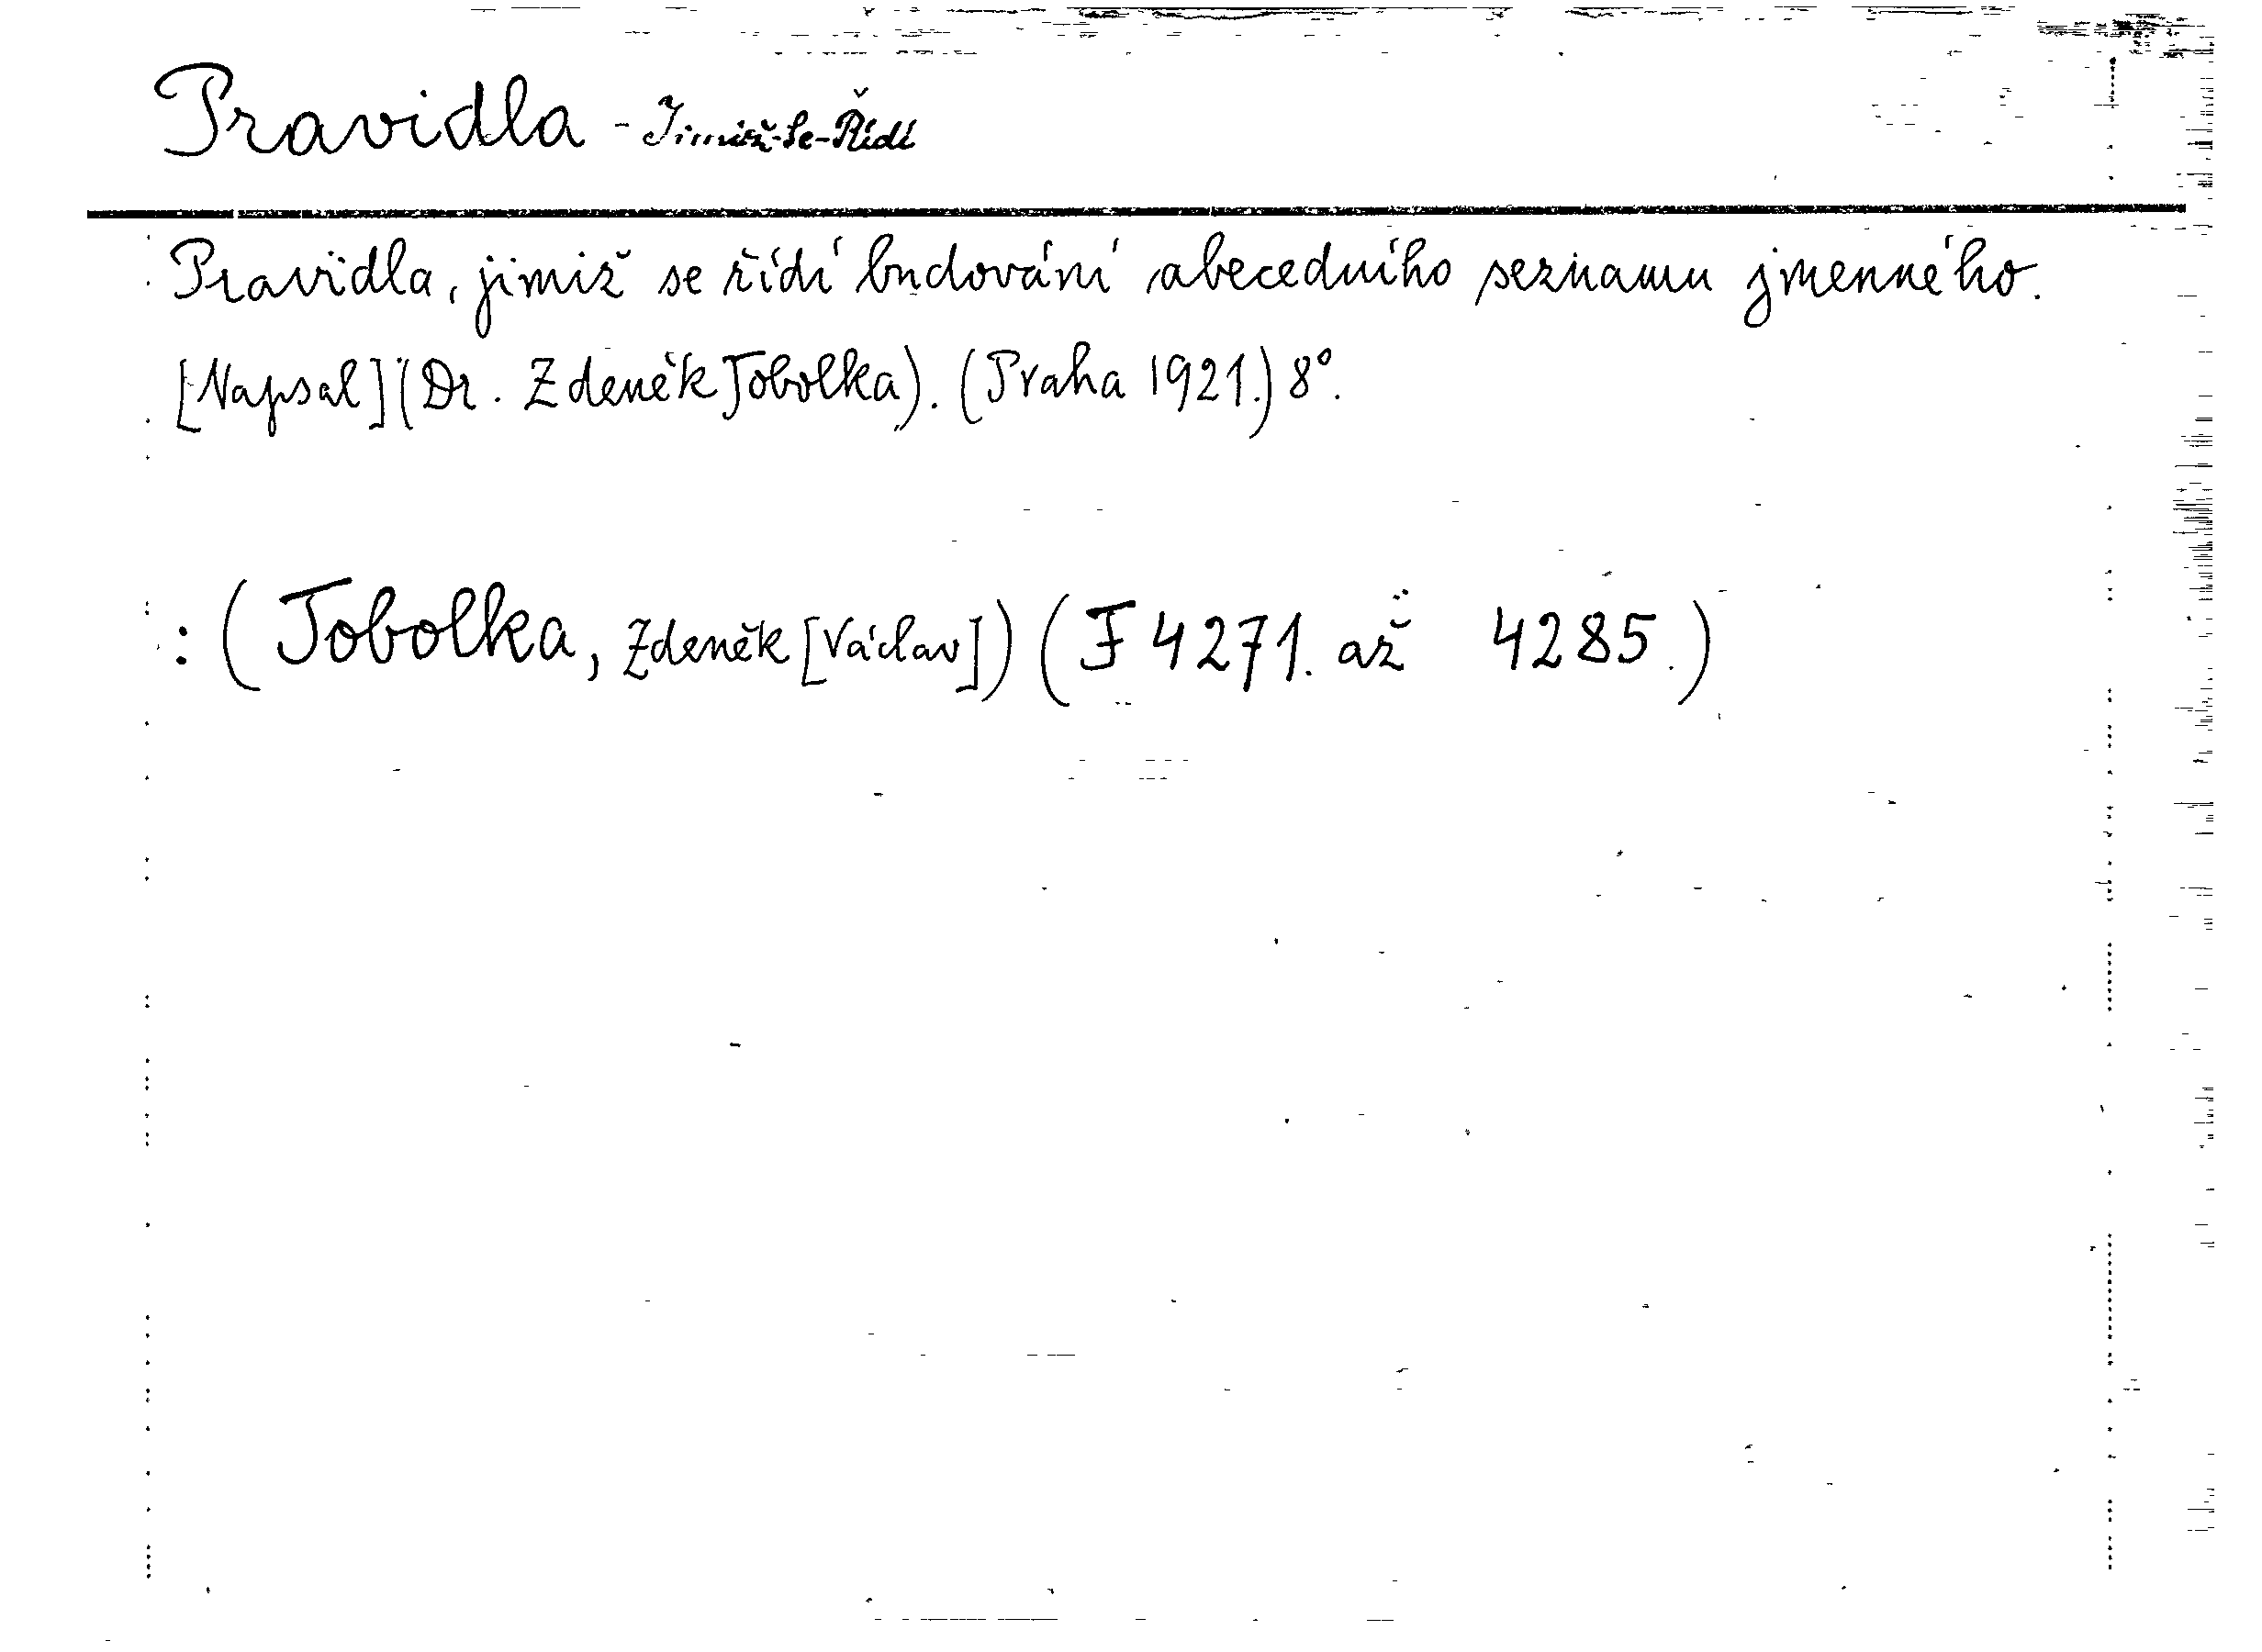 Pravidla - Jimiž-Se-Řídí
Pravidla, jimiž se řídí budování abecedního seznamu jmenného.
[Napsal] (Dr. Zdeněk Tobolka). (Praha 1921.) 8°.
: (Tobolka, Zdeněk [Václav]) (F 4271. až 4285.)